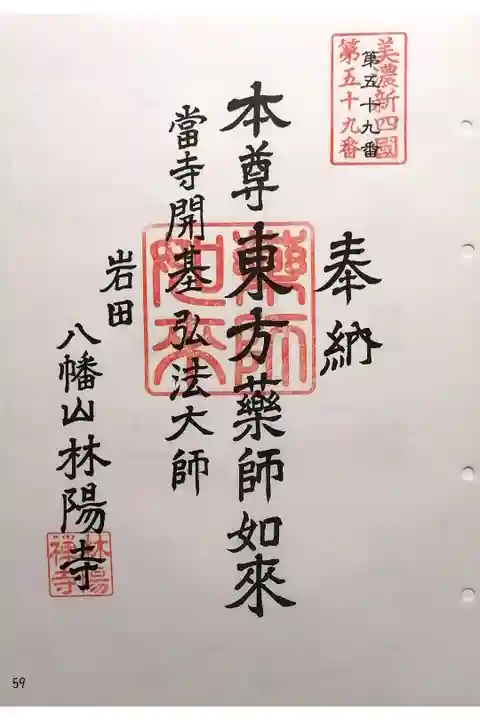 美濃新四國
第五十九番
第五十九番
奉納
本尊東方藥師如來
藥師
如來
當寺開基弘法大師
岩田
八幡山林陽寺
林陽
禅寺
59